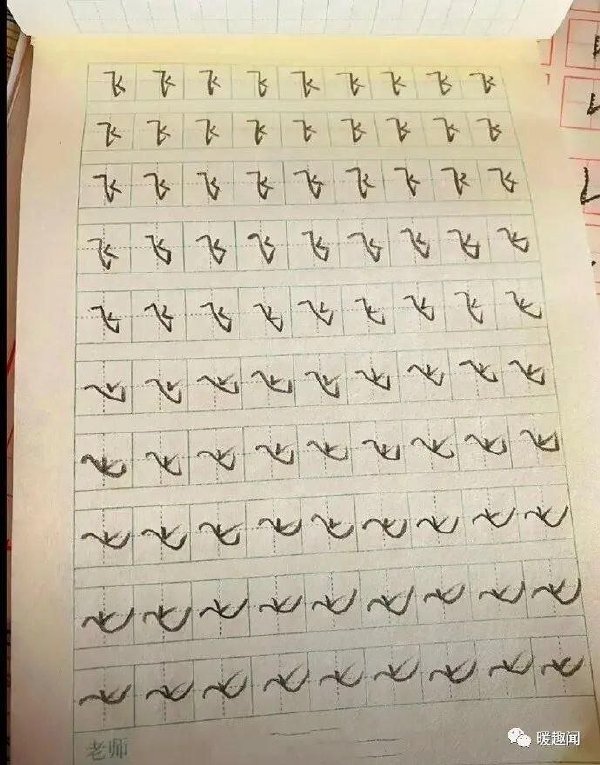 飞飞飞飞飞飞飞飞飞
飞飞飞飞飞飞飞飞飞
飞飞飞飞飞飞飞飞飞
飞飞飞飞飞飞飞飞飞
飞飞飞飞飞飞飞飞飞
飞飞飞飞飞飞飞飞飞
飞飞飞飞飞飞飞飞飞
飞飞飞飞飞飞飞飞飞
飞飞飞飞飞飞飞飞飞
飞飞飞飞飞飞飞飞飞
老师
暖趣闻